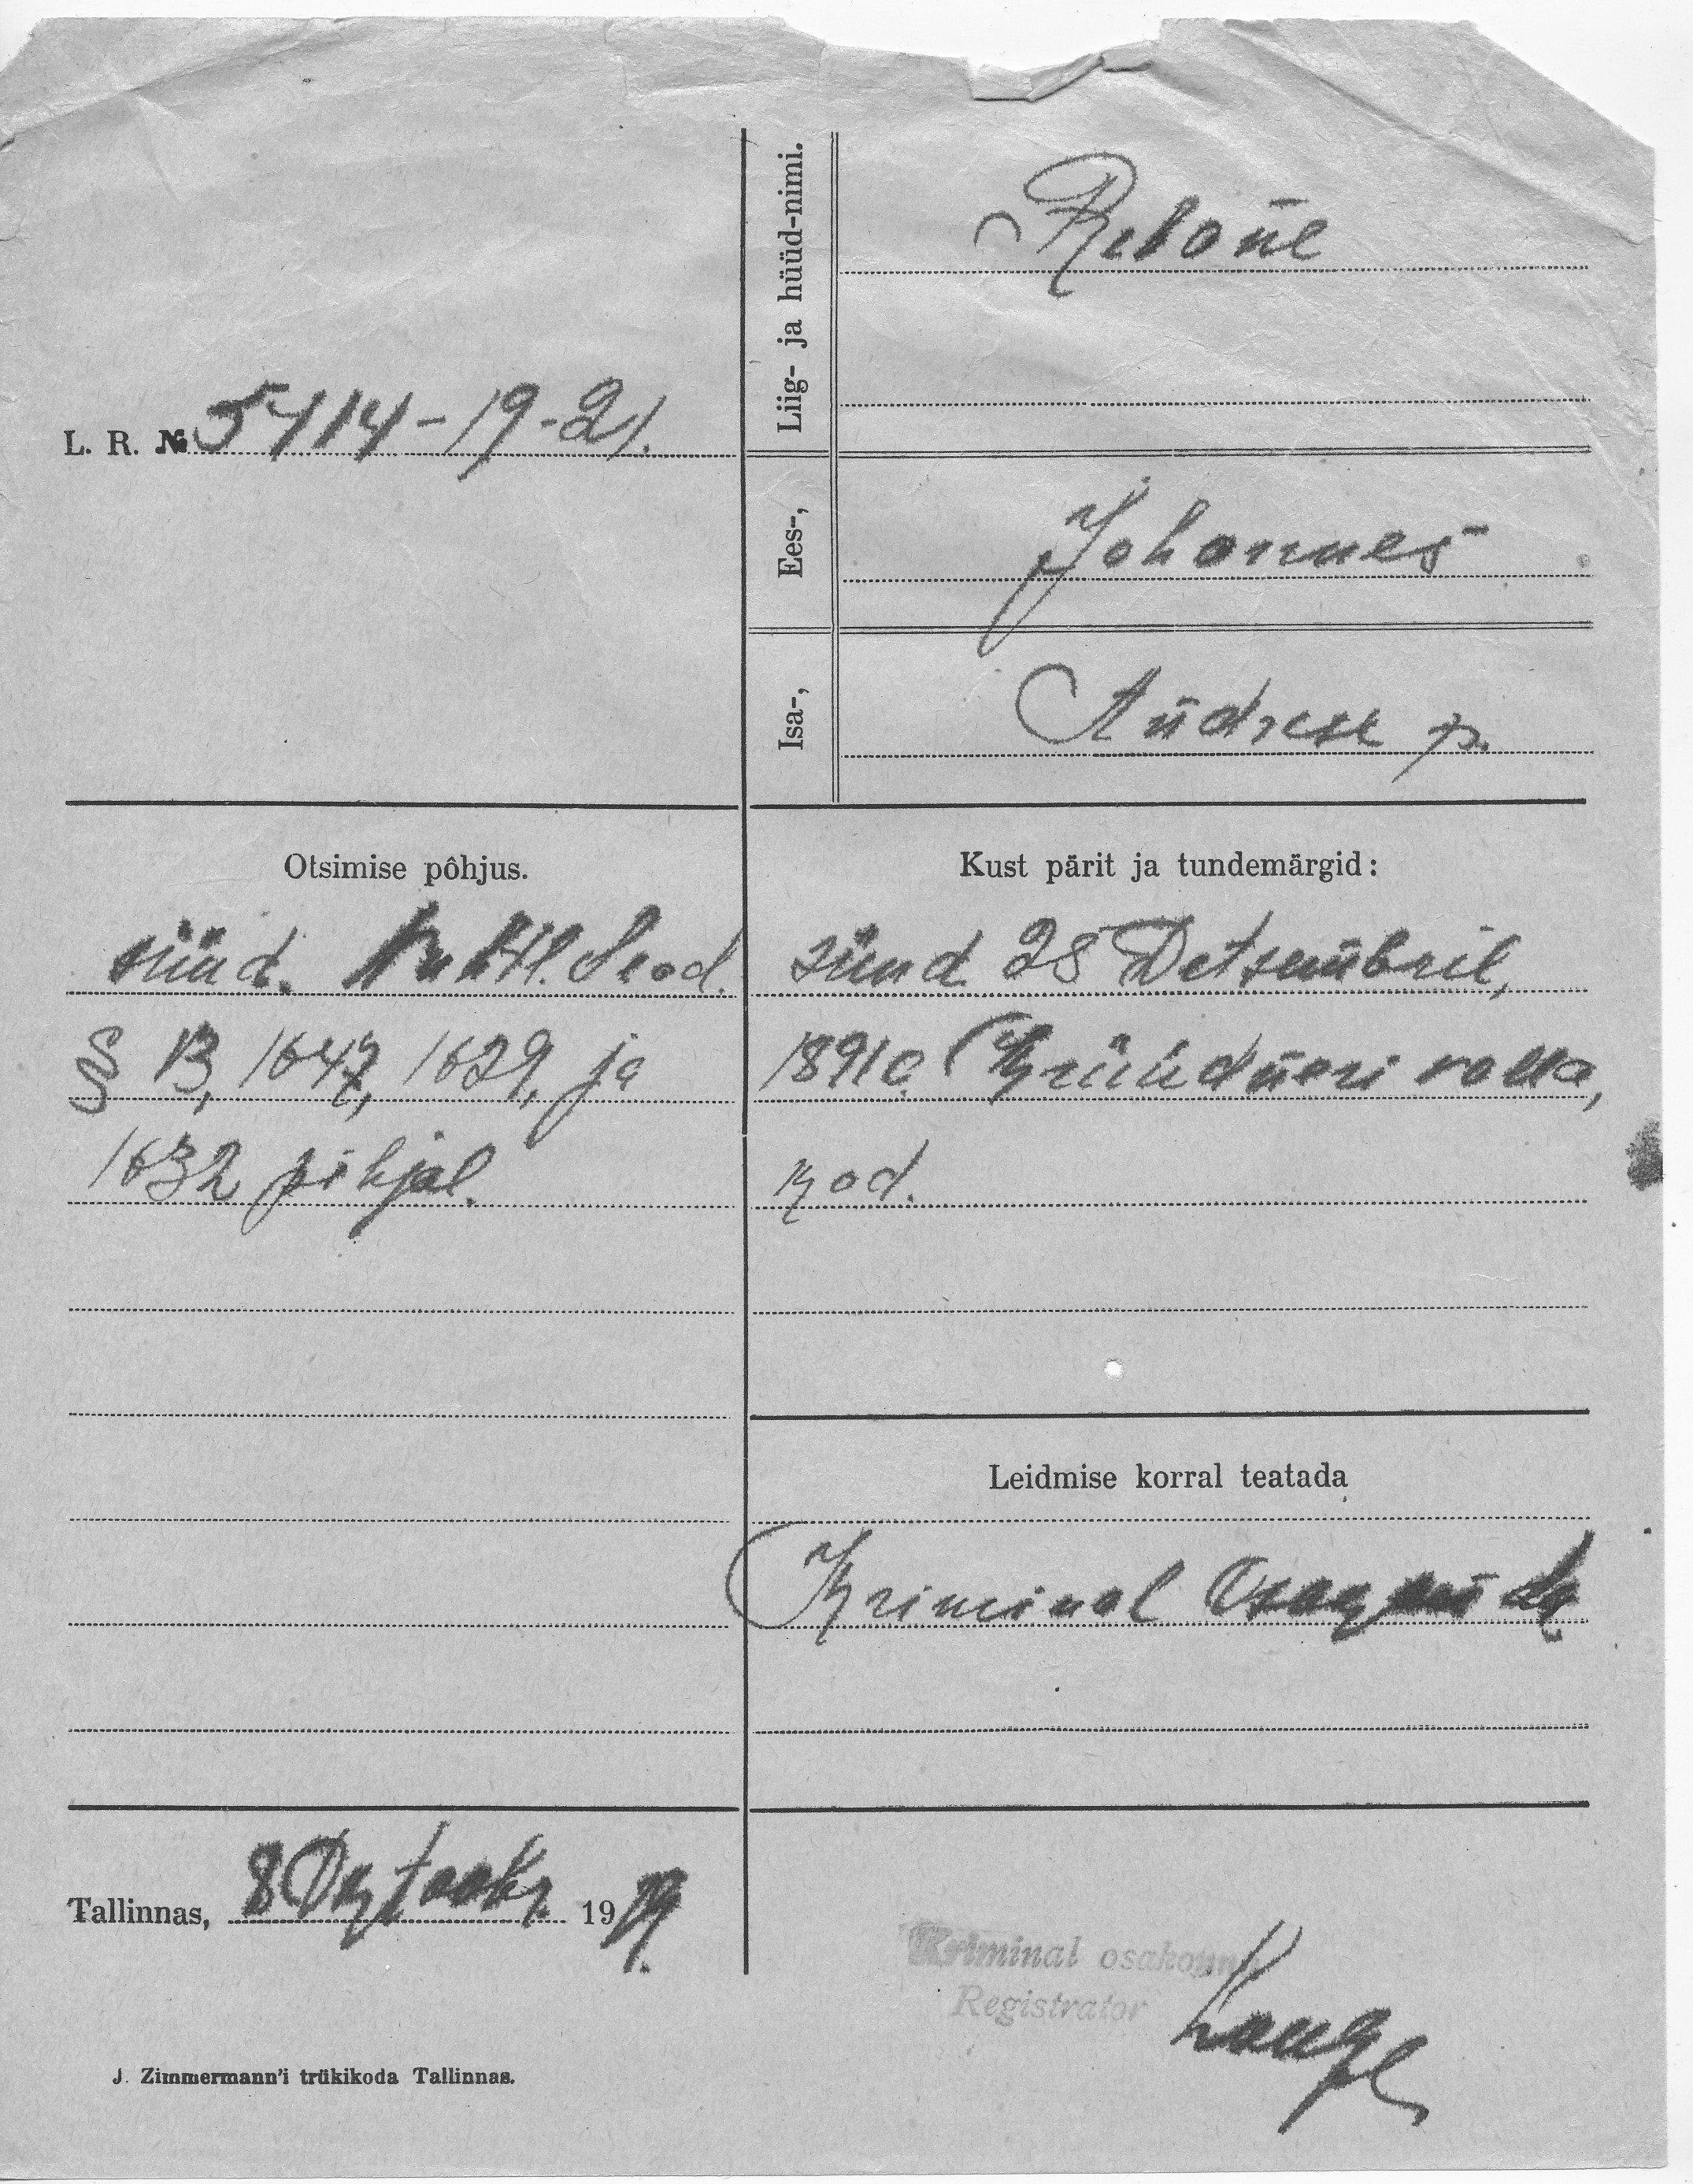 L. R. № 5414-19-21.
Liig- ja hüüd-nimi.
Rebane
Ees-,
Johannes
Isa-,
Andrese p.
Otsimise põhjus.
süüd. Seod.
§ 13, 1647, 1629, ja
1632 põhjal.
Kust pärit ja tundemärgid:
sünd 28 Detsembril,
1891 a. valla,
kod.
Leidmise korral teatada
Kriminal Osakonda
Tallinnas, 8 1919.
Kriminal osakonna
Registrator
J. Zimmermann'i trükikoda Tallinnas.